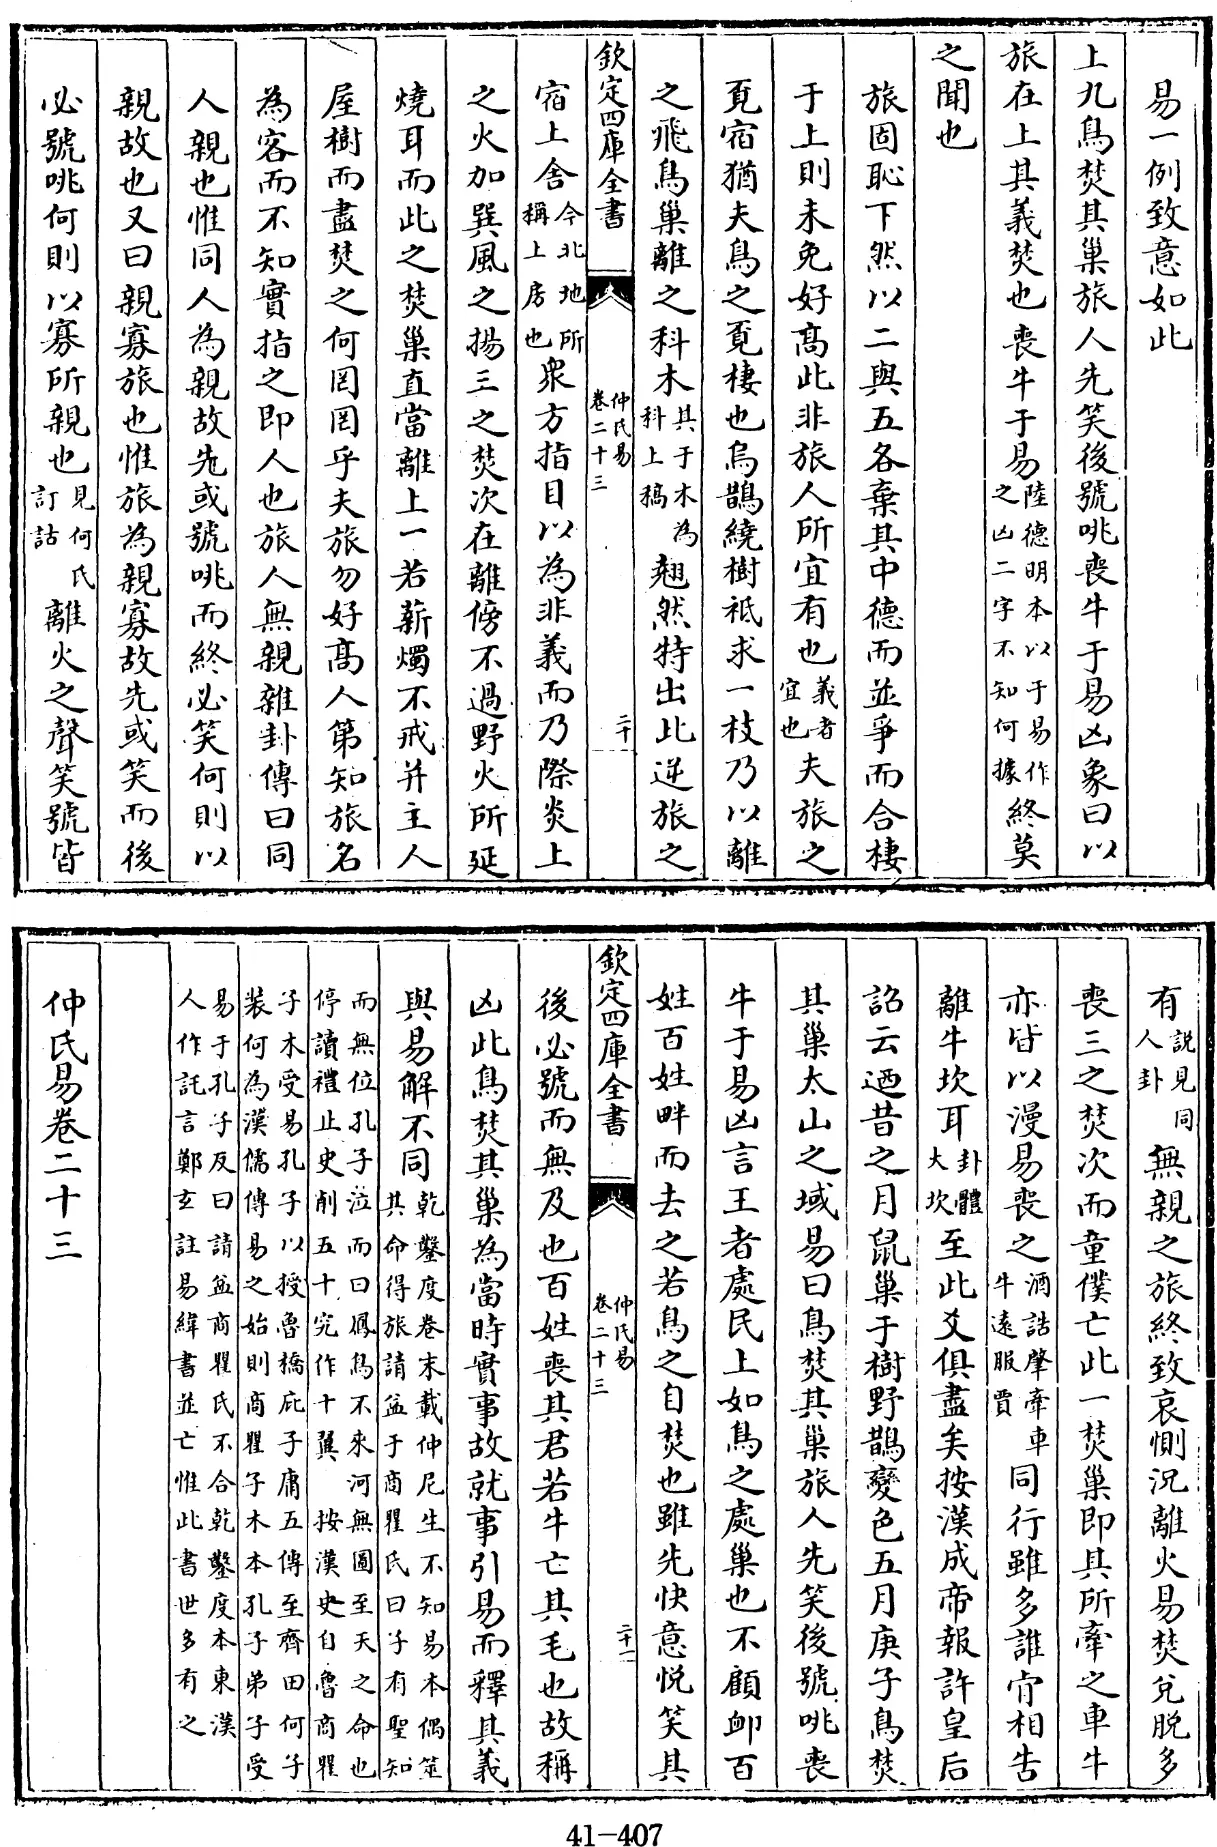 易一例致意如此
上九鳥焚其巢旅人先笑後號咷喪牛于易凶象曰以
旅在上其義焚也喪牛于易陸德明本以于易作之凶二字不知何據終莫
之聞也
旅固恥下然以二與五各棄其中德而並爭而合棲
于上則未免好高此非旅人所宜有也義者宜也夫旅之
覔宿猶夫鳥之覔棲也烏鵲繞樹祗求一枝乃以離
之飛鳥巢離之科木其于木為科上稿翹然特出此逆旅之
欽定四庫全書
仲氏易
卷二十三
二十
宿上舍今北地所稱上房也衆方指目以為非義而乃際炎上
之火加巽風之揚三之焚次在離傍不過野火所延
燒耳而此之焚巢直當離上一若薪燭不戒并主人
屋樹而盡焚之何罔罔乎夫旅勿好高人第知旅名
為客而不知實指之即人也旅人無親雜卦傳曰同
人親也惟同人為親故先或號咷而終必笑何則以
親故也又曰親寡旅也惟旅為親寡故先或笑而後
必號咷何則以寡所親也見何氏訂詁離火之聲笑號皆
有說見同人卦無親之旅終致哀惻況離火易焚兌脫多
喪三之焚次而童僕亡此一焚巢即其所牽之車牛
亦皆以漫易喪之酒誥肇牽車牛遠服賈同行雖多誰肯相告
離牛坎耳卦體大坎至此爻俱盡矣按漢成帝報許皇后
詔云迺昔之月鼠巢于樹野鵲變色五月庚子鳥焚
其巢太山之域易曰鳥焚其巢旅人先笑後號咷喪
牛于易凶言王者處民上如鳥之處巢也不顧卹百
姓百姓畔而去之若鳥之自焚也雖先快意悅笑其
欽定四庫全書
仲氏易
卷二十三
二十一
後必號而無及也百姓喪其君若牛亡其毛也故稱
凶此鳥焚其巢為當時實事故就事引易而釋其義
與易解不同乾鑿度卷末載仲尼生不知易本偶筮其命得旅請益于商瞿氏曰子有聖知
而無位孔子泣而曰鳳鳥不來河無圖至天之命也停讀禮止史削五十究作十翼 按漢史自魯商瞿
子木受易孔子以授魯橋庇子庸五傳至齊田何子裝何為漢儒傳易之始則商瞿子木本孔子弟子受
易于孔子反曰請益商瞿氏不合乾鑿度本東漢人作託言鄭玄註易緯書並亡惟此書世多有之
仲氏易卷二十三
41-407